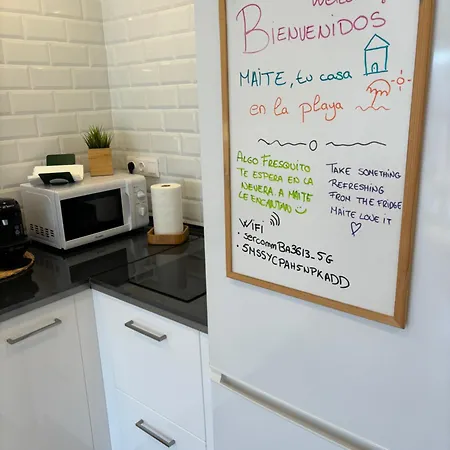 BIENVENIDOS
MAITE, tu casa
en la playa
ALGO FRESQUITO
TE ESPERA EN LA
NEVERA. A MAITE
LE ENCANTAN
TAKE SOMETHING
REFRESHING
FROM THE FRIDGE
MAITE LOVE IT
WIFI
• SercommBA3613_5G
• SMSSYCPAH5NPKADD